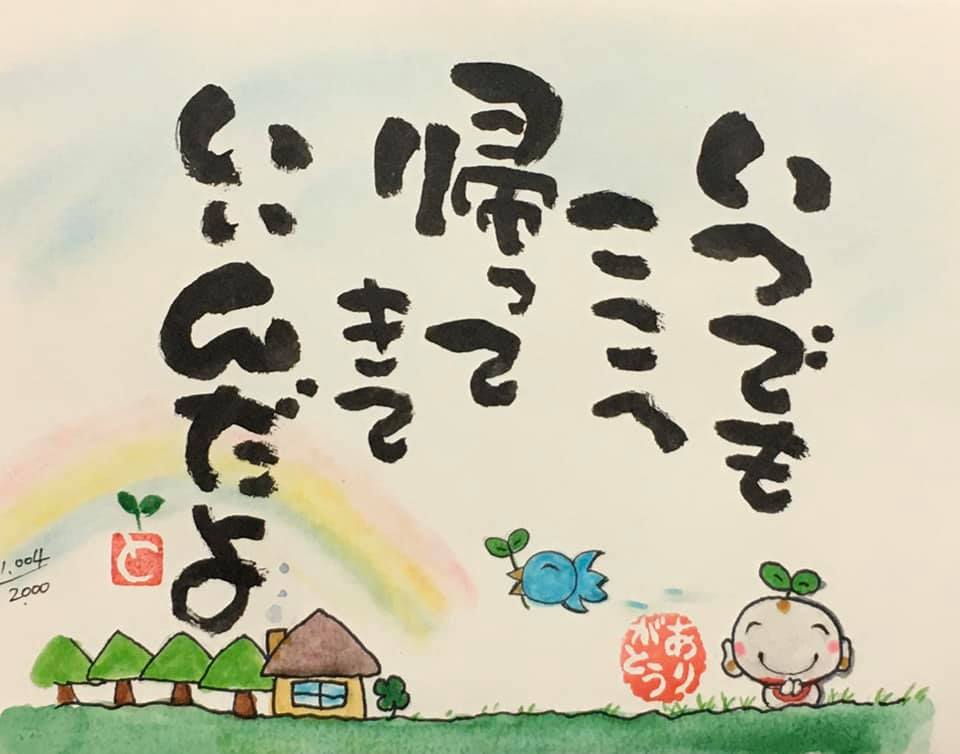 いつでも
ここへ
帰って
きて
いいんだよ
あり
がとう
と
1.004
2000